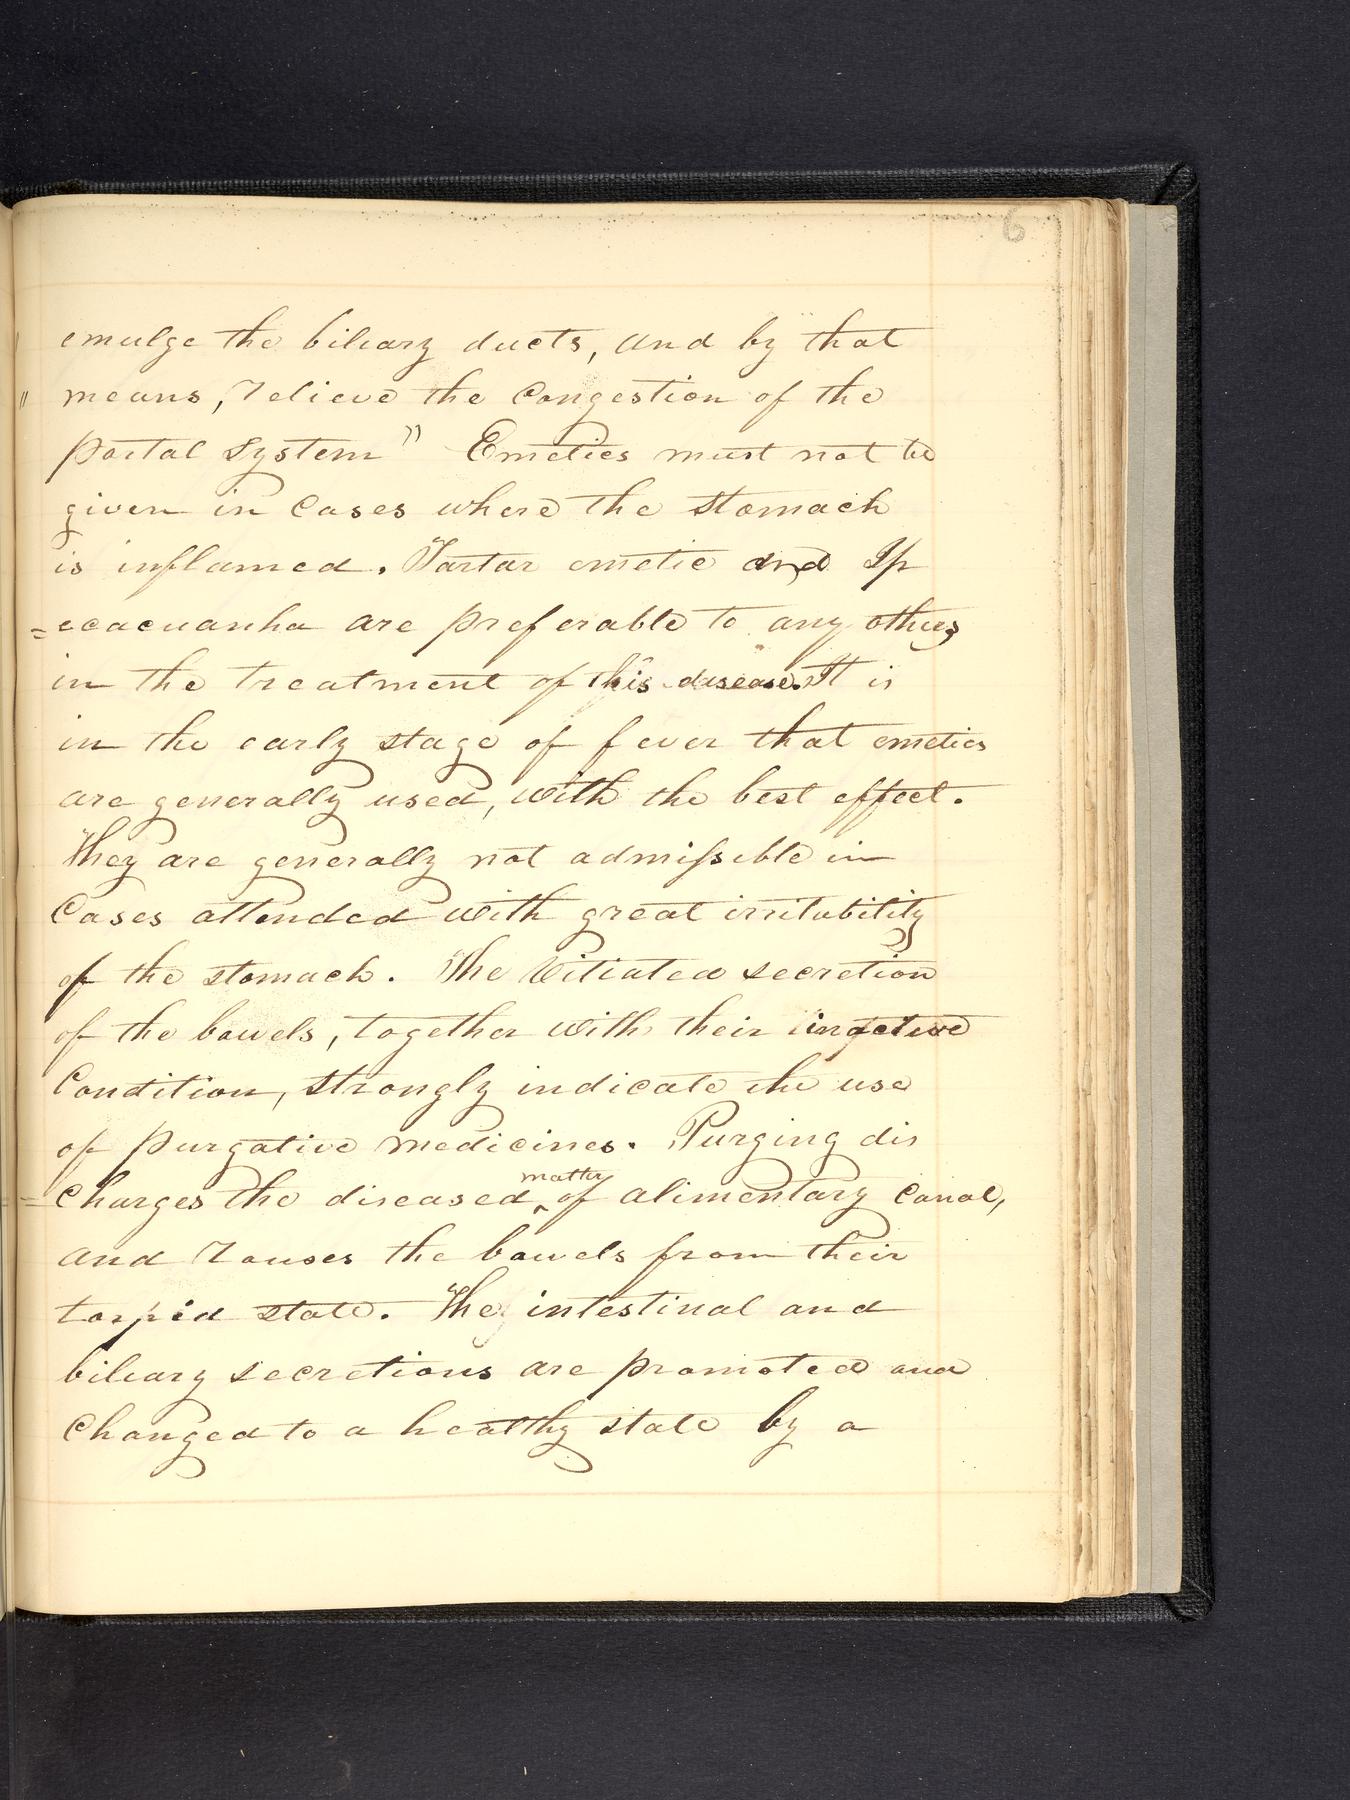 6
emulge the biliary ducts, and by that
" means, relieve the Congestion of the
portal System" Emetics must not be
given in Cases where the Stomach
is inflamed. Tartar emetic and Ip
=ecacuanha are preferable to any others
in the treatment of this disease. It is
in the early stage of fever that emetics
are generally used, with the best effect.
They are generally not admissible in
Cases attended with great irritability
of the stomach. The Vitiated secretion
of the bowels, together with their inactive
Condition, strongly indicate the use
of purgative medicines. Purging dis
=charges the diseased matter of alimentary Canal,
and rouses the bowels from their
torpid state. The intestinal and
biliary secretions are promoted and
Changed to a healthy state by a